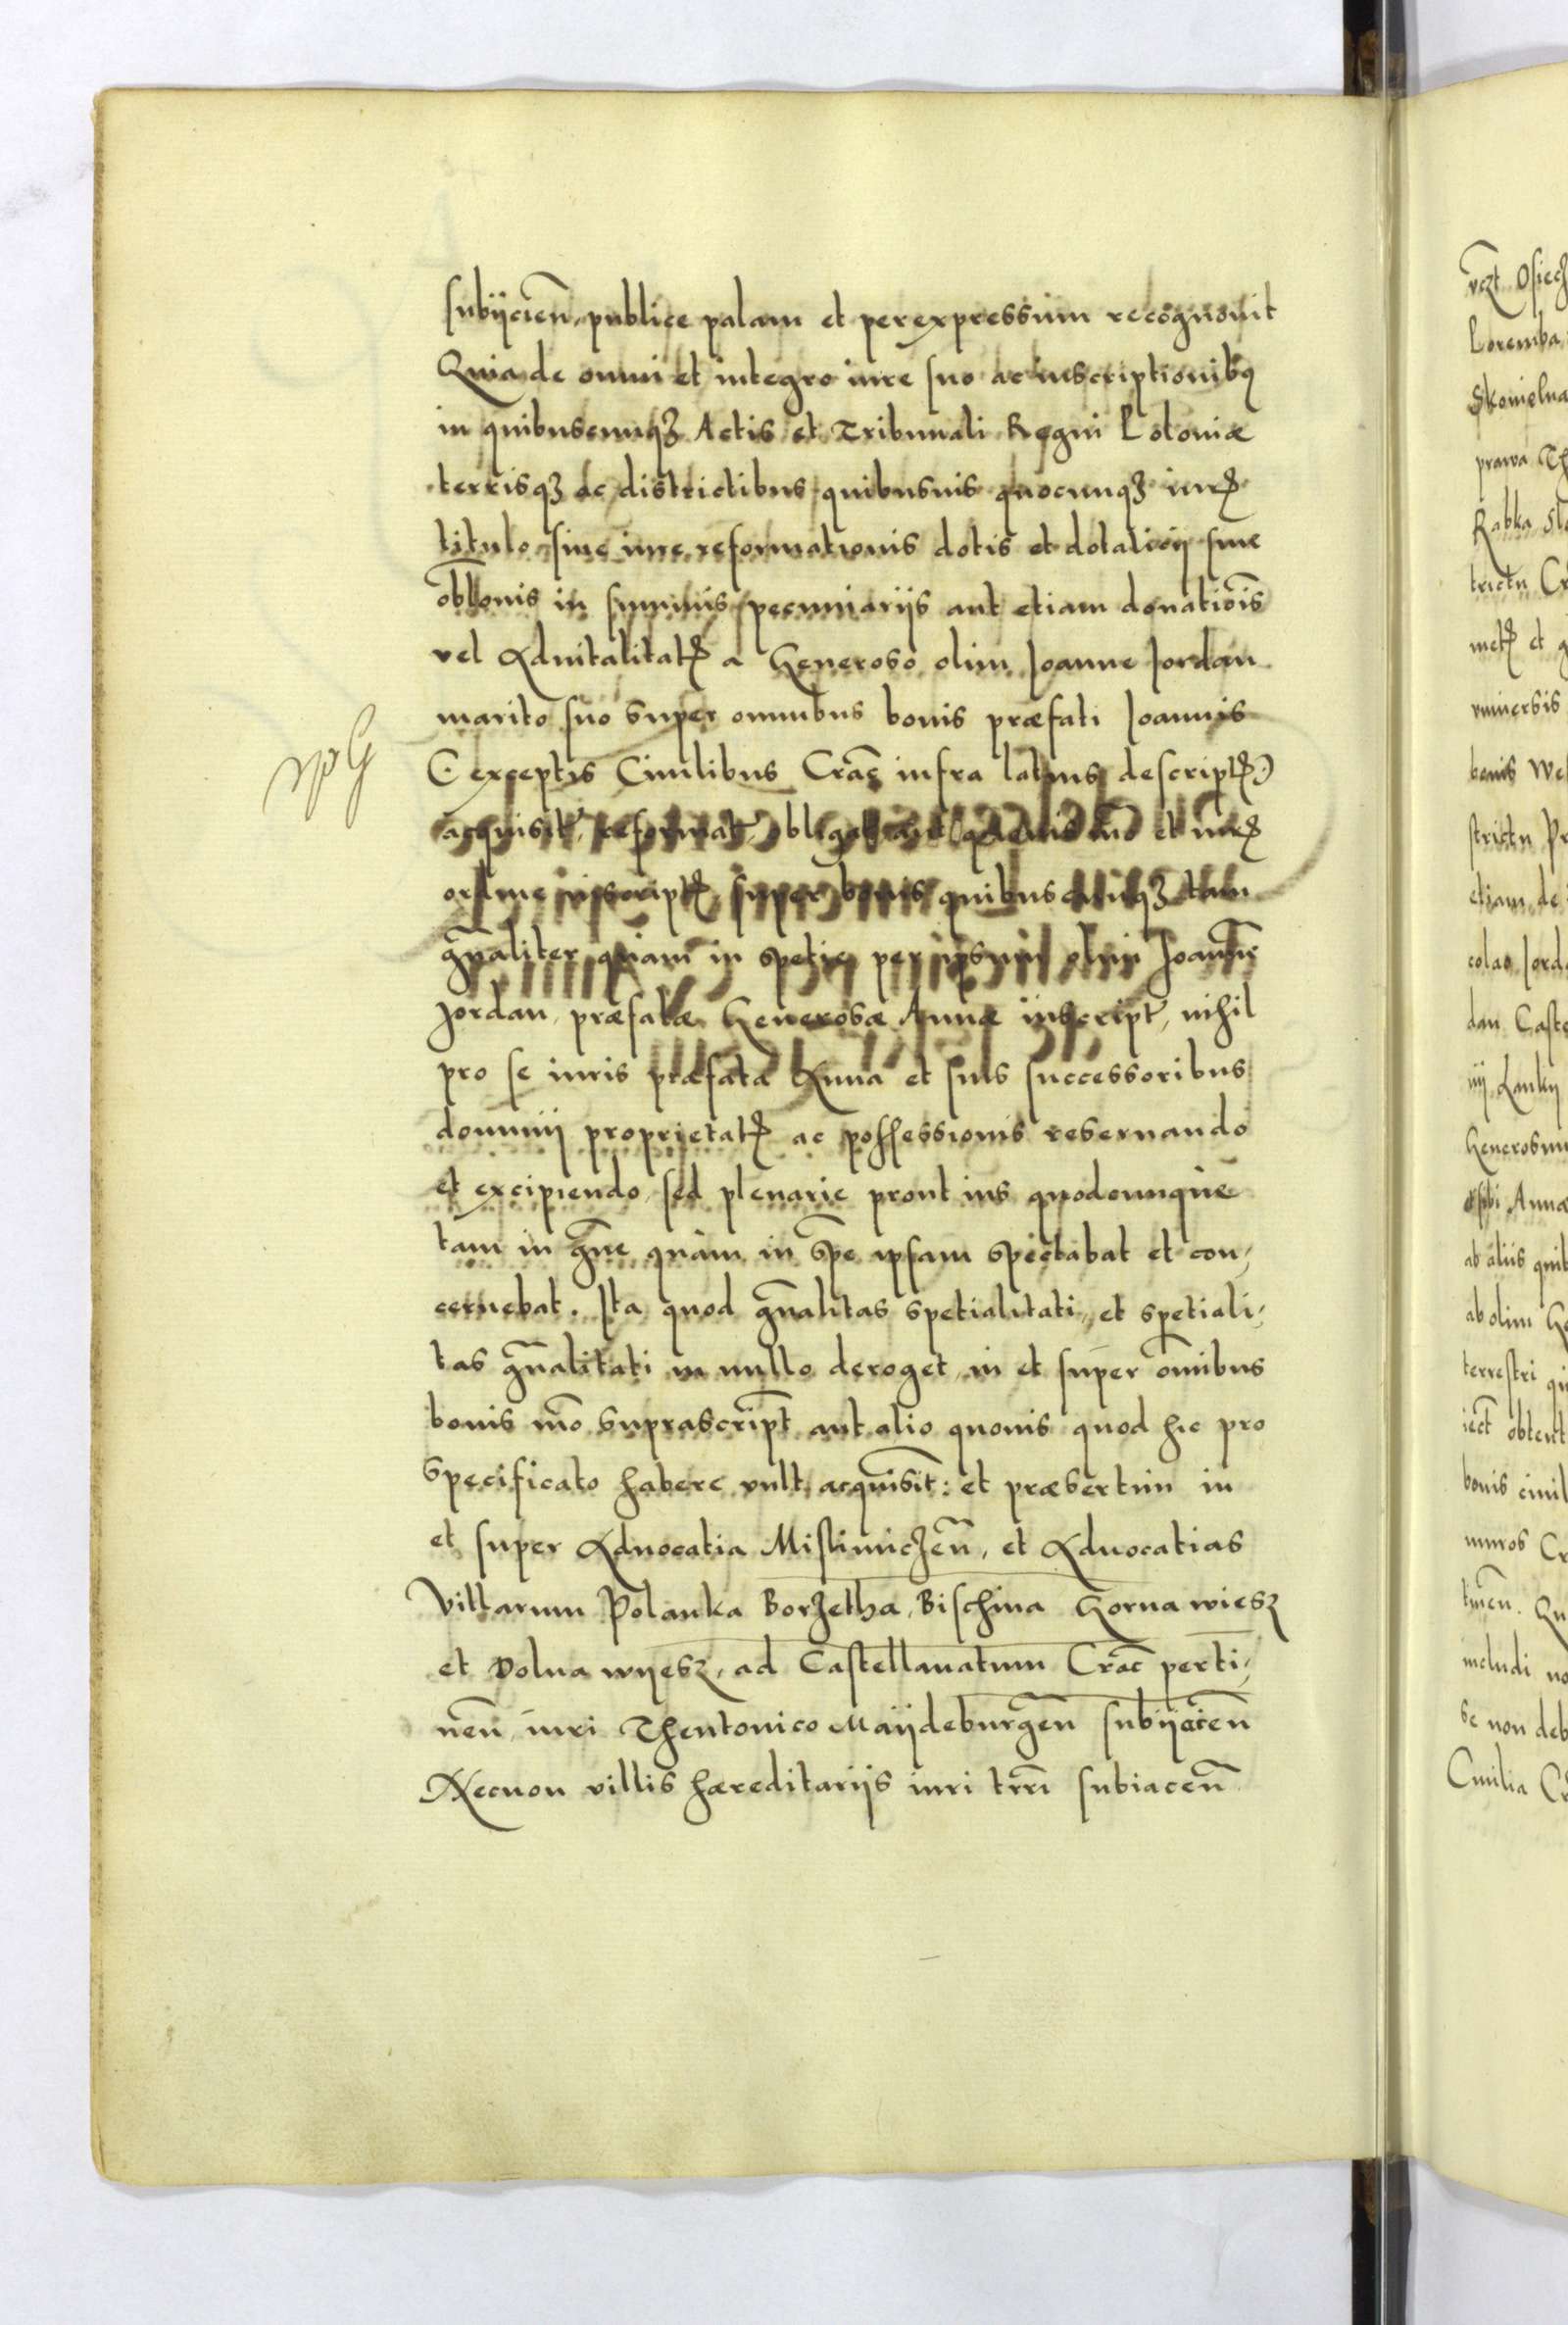 subijcien, publice palam et perexpressum recognouit
Quia de omni et integro iure suo ac inscriptionibq
in quibuscunqz Actis et Tribunali Regni Poloniæ
terrisqz ac districtibus quibusuis quocunqz iure
titulo siue iure reformationis dotis et dotalicij siue
oblonis in summis pecuniarijs aut etiam donatiois
vel Aduitalitat a Generoso olim Joanne Jordan
marito suo super omnibus bonis præfati Joannis
(exceptis Ciuilibus Crac infra latius descript)
acquisit, reformat, obligat aut quouis mo et iure
ordine inscript super bonis quibuscunqz tam
gnaliter quam in spetie per ipsum olim Joannem
Jordan, præfatæ Generosæ Annæ inscript, nihil
pro se iuris præfata Anna et suis successoribus
dominij proprietat ac possessionis reseruando
et excipiendo, sed plenarie prout ius quodcunque
tam in gne quàm in spe ipsam spectabat et con,
cernebat. Ita quod gnalitas spetialitati, et spetiali,
tas gnalitati in nullo deroget, in et super omibus
bonis mo suprascript aut alio quouis quod hic pro
specificato habere vult acquisit: et præsertim in
et super Aduocatia Mislimiczen, et Aduocatias
Villarum Polanka Borzetha, Bischina Gorna wiesz
et Dolna wyesz, ad Castellanatum Crac perti,
nen, iuri Theutonico Maijdeburgen subijacen
Necnon villis hæreditarijs iuri trri subiacen